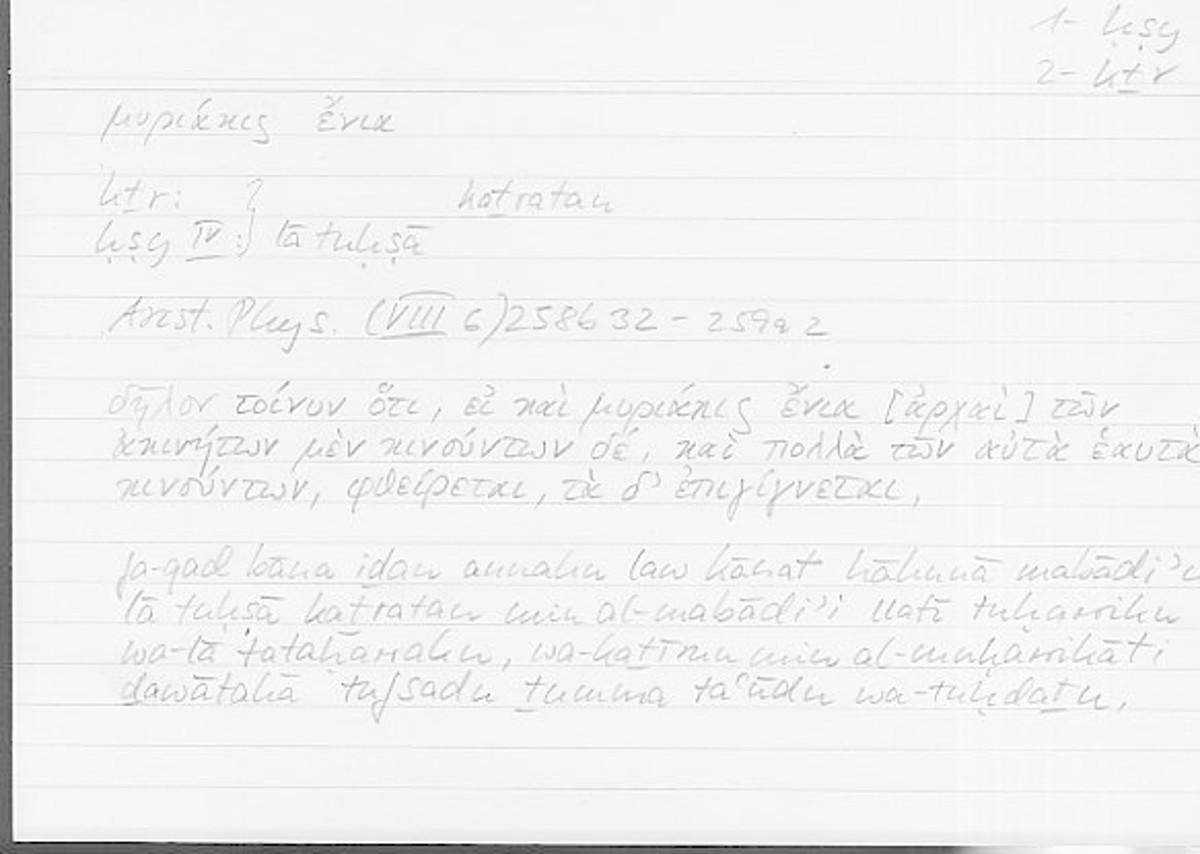 1- ḥṣy
2- kṯr
μυριάκις ἔνια
kṯr: } kaṯratan
ḥṣy IV: } lā tuḥṣā
Arist. Phys. (VIII 6) 258b32 - 259a2
δῆλον τοίνυν ὅτι, εἰ καὶ μυριάκις ἔνια [ἀρχαὶ] τῶν
ἀκινήτων μὲν κινούντων δέ, καὶ πολλὰ τῶν αὐτὰ ἑαυτὰ
κινούντων, φθείρεται, τὰ δ' ἐπιγίγνεται,
fa-qad bāna iḏan annahu law kānat hāhunā mabādiʾu
lā tuḥṣā kaṯratan min al-mabādiʾi llatī tuḥarriku
wa-lā tataḥarraku, wa-kaṯīrun min al-muḥarrikāti
ḏawātahā tufsadu ṯumma taʿūdu wa-tuḥdaṯu,